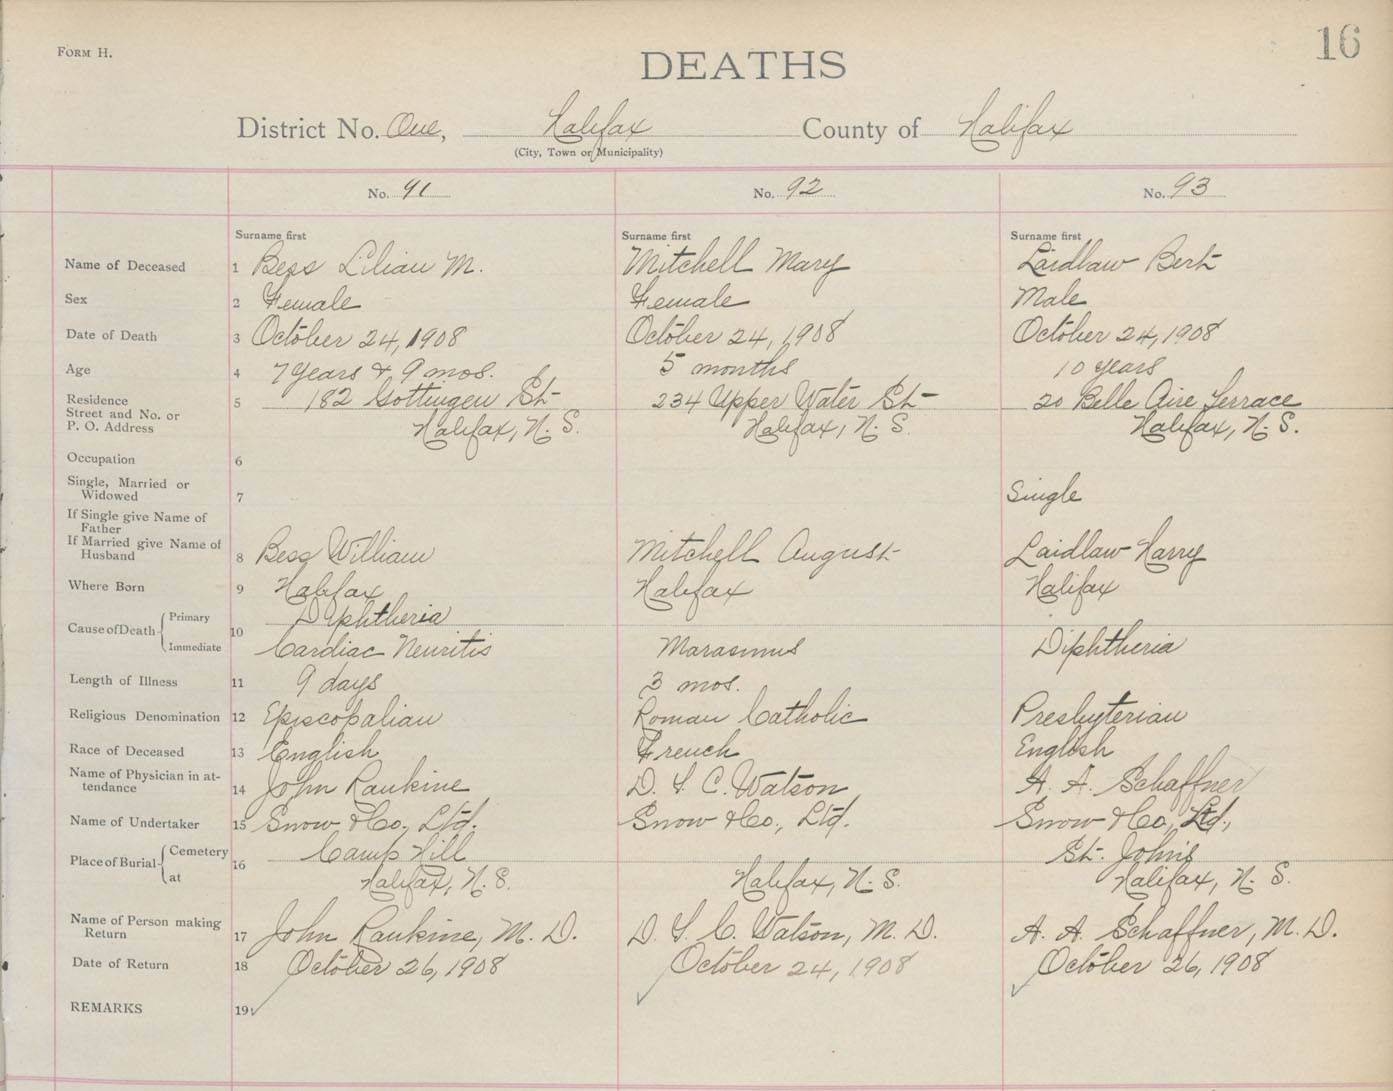 FORM H.
DEATHS
16
District No. One, Halifax County of Halifax
(City, Town or Municipality)
No. 91 No. 92 No. 93
Surname first Surname first Surname first
Name of Deceased 1 Bess Lilian M. Mitchell Mary Laidlaw Bert
Sex 2 Female Female Male
Date of Death 3 October 24, 1908 October 24, 1908 October 24, 1908
Age 4 7 years & 9 mos. 5 months 10 years
Residence 5 182 Gottingen St- 234 Upper Water St- 20 Belle Aire Terrace
Street and No. or
P. O. Address Halifax, N. S. Halifax, N. S. Halifax, N. S.
Occupation 6
Single, Married or
Widowed 7 Single
If Single give Name of
Father
If Married give Name of
Husband 8 Bess William Mitchell August Laidlaw Harry
Where Born 9 Halifax Halifax Halifax
Cause of Death Primary 10 Diphtheria
Immediate Cardiac Neuritis Marasmus Diphtheria
Length of Illness 11 9 days 3 mos.
Religious Denomination 12 Episcopalian Roman Catholic Presbyterian
Race of Deceased 13 English French English
Name of Physician in at-
tendance 14 John Rankine D. S. C. Watson A. A. Schaffner
Name of Undertaker 15 Snow & Co., Ltd. Snow & Co., Ltd. Snow & Co, Ltd.,
Place of Burial Cemetery 16 Camp Hill St. John's
at Halifax, N. S. Halifax, N. S. Halifax, N. S.
Name of Person making
Return 17 John Rankine, M. D. D. S. C. Watson, M. D. A. A. Schaffner, M. D.
Date of Return 18 October 26, 1908 October 24, 1908 October 26, 1908
REMARKS 19